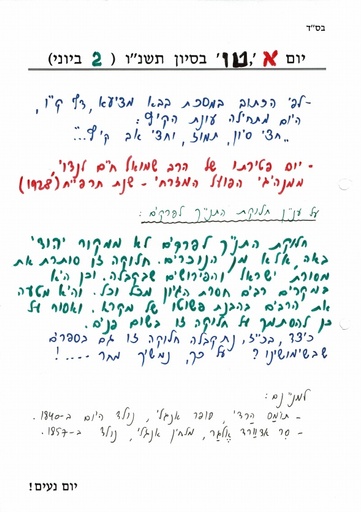 בס״ד
יום א', טו' בסיון תשנ״ו ( 2 ביוני)
-לפי הכתוב במסכת בבא מציעא, דף ק״ו,
היום מתחילה עונת הקיץ:
"חצי סיון, תמוז, וחצי אב קיץ..."
- יום פטירתו של הרב שמואל חיים לנדוי,
ממנהיגי הפועל המזרחי - שנת תרפ״ח (1928)
על ענין חלוקת התנ״ך לפרקים:
חלוקת התנ״ך לפרקים לא ממקור יהודי
באה, אלא מן הנוכרים. חלוקה זו סותרת את
מסורת ישראל והפירושים שבקבלה. וכן היא
במקרים רבים חסרת הגיון מכל וכל. והיא מטעה
את הרבים בהבנת פשוטו של מקרא. ואסור על
כן להסתמך על חלוקה זו בשום פנים.
כיצד, בכ״ז, נתקבלה חלוקה זו גם בספרים
שבשימושינו? על כך, נמשיך מחר ....!
למנינם:
- תומס הרדי, סופר אנגלי, נולד היום ב-1840.
- סר אדוורד אלגר, מלחין אנגלי, נולד ב-1857.
יום נעים!